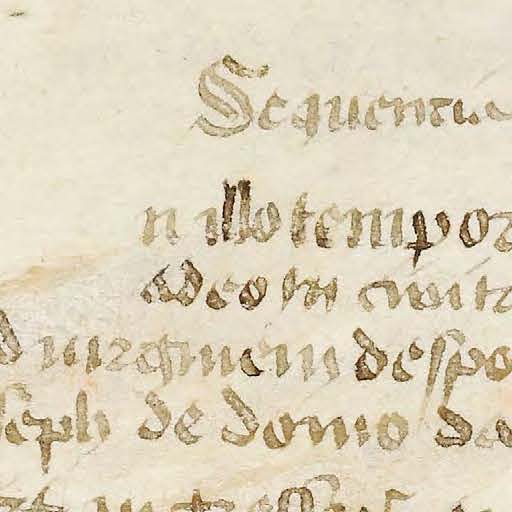 Sequentia
n illo tempor
a deo in civita
d virginem despo
seph de domo da